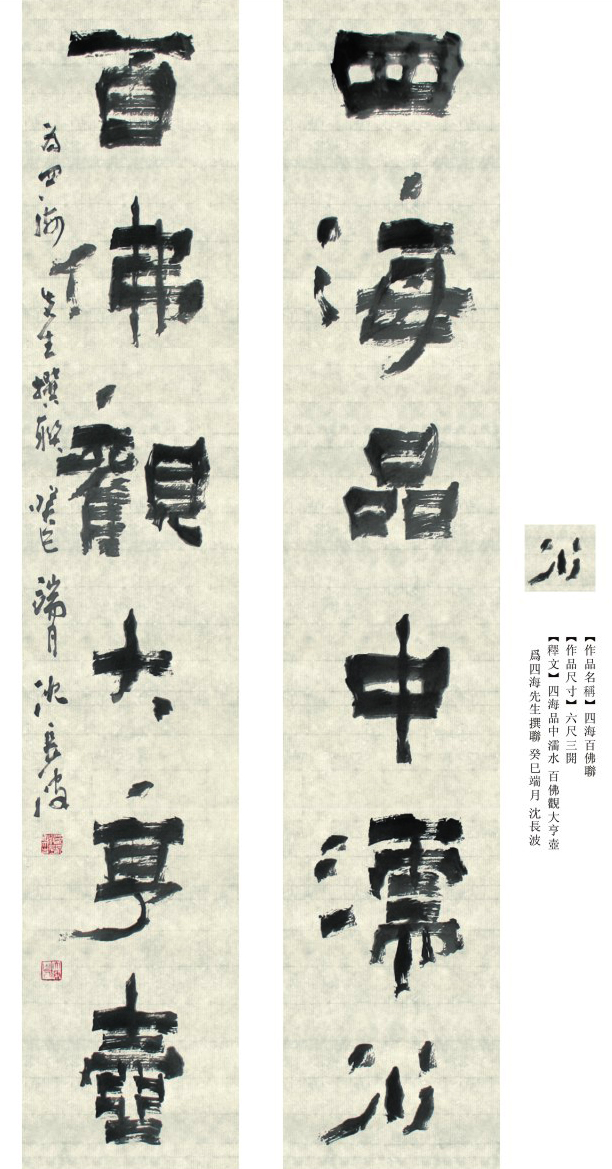 四海品中濡水
百佛觀大亨壺
為四海丁先生撰聯 癸巳端月 沈長波
【作品名稱】四海百佛聯
【作品尺寸】六尺三開
【釋文】四海品中濡水 百佛觀大亨壺
爲四海先生撰聯 癸巳端月 沈長波